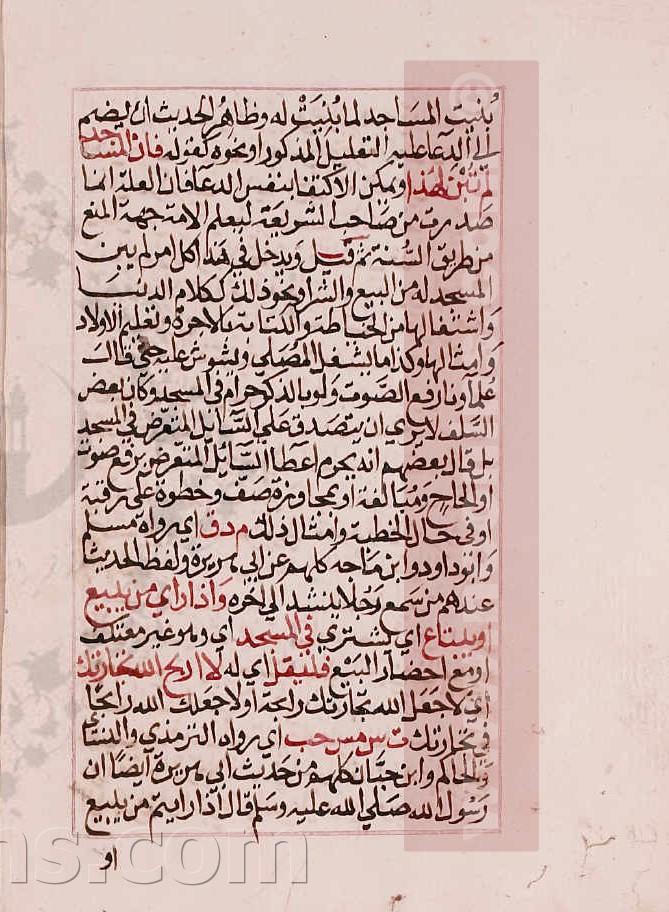 بُنيت المساجد لما بُنيَتْ له وظاهرُ الحديث ان يضم
الى الدعا عليه التعليل المذكور او نحوه كقوله فان المساجد
لم تُبْن لهذا ويمكن الاكتفا بنفس الدعا فان العلة انما
صدرت من صاحب الشريعة ليعلم الامة جهة المنع
من طريق السُّنة ثم قيل ويدخل في هذا كل امر لم يبن
المسجد له من البيع والشرا ونحو ذلك ككلام الدنيا
واشتغالها من الخياطة والكتابة بالاجرة وتعليم الاولاد
وامثالها وكذا ما يشغل المصلي ويشوش عليه حتى قال
علماونا رفع الصوت ولو بالذكر حرام في المسجد وكان بعض
السلف لا يري ان يتصدق علي السايل المتعرض في المسجد
بل قال بعضهم انه يحرم اعطا السائل المتعرض برفع صوت
او الحاح ومبالغة او بمجاوزة صف وخطوة على رقبة
او في حال الخطبة وامثال ذلك م د ق اي رواه مسلم
وابوداود وابن ماجه كلهم عن ابي هريرة ولفظ الحديث
عندهم من سمع رجلا ينشد الي اخره واذا راي من يبيع
او يبتاع اي يشتري في المسجد اي وهو غير معتكف
او مع احضار البيع فليقل اي له لا اربح الله تجارتك
اي لا جعل الله تجارتك رابحة او لا جعلك الله رابحا
في تجارتك ت س مس حب اي رواه الترمذي والنسائي
والحاكم وابن حبان كلهم من حديث ابي هريرة ايضا ان
رسول الله صلي الله عليه وسلم قال اذا رايتم من يبيع
او
ns.com